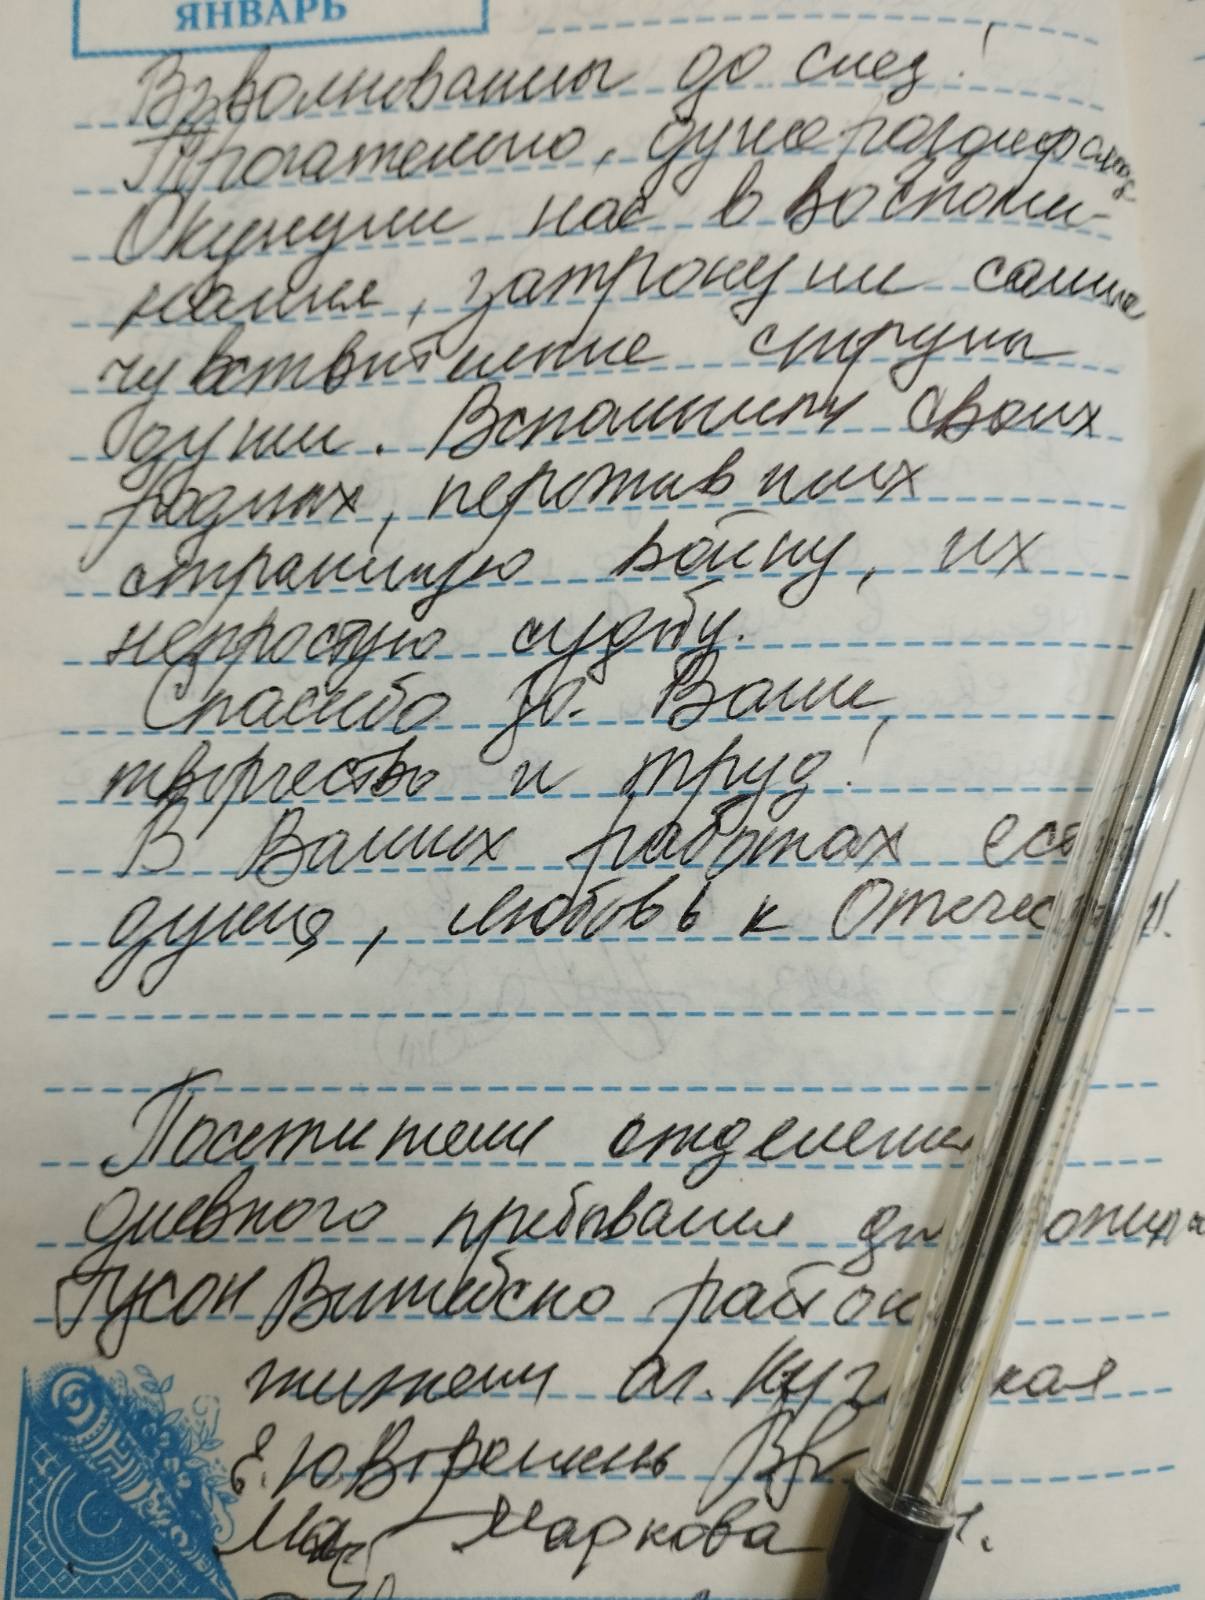 ЯНВАРЬ
Взволнованы до слез!
Трогательно, душераздирающе
Окунули нас в воспоми-
нания, затронули самые
чувствительные струны
души. Вспомнили своих
родных, переживших
страшную войну, их
непростую судьбу.
Спасибо за Ваше
творчество и труд!
В Ваших работах есть
душа, любовь к Отечеств!
Посетители отделения
дневного пребывания для
ТЦСОН Витебского района
жители аг.
Е.Ю.
Маркова